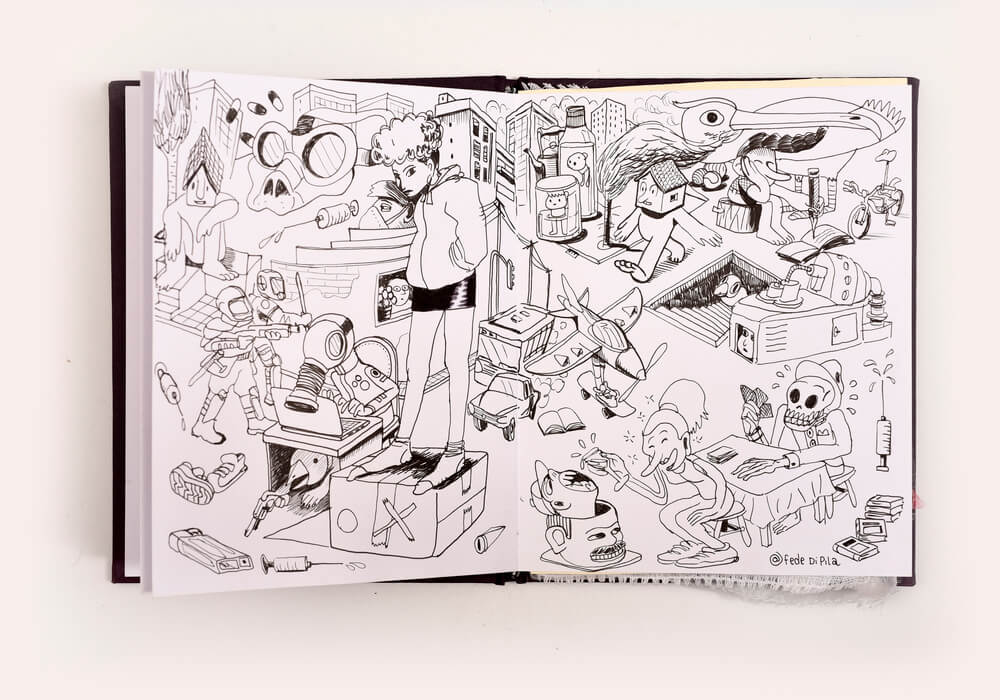 @fede Di Pila